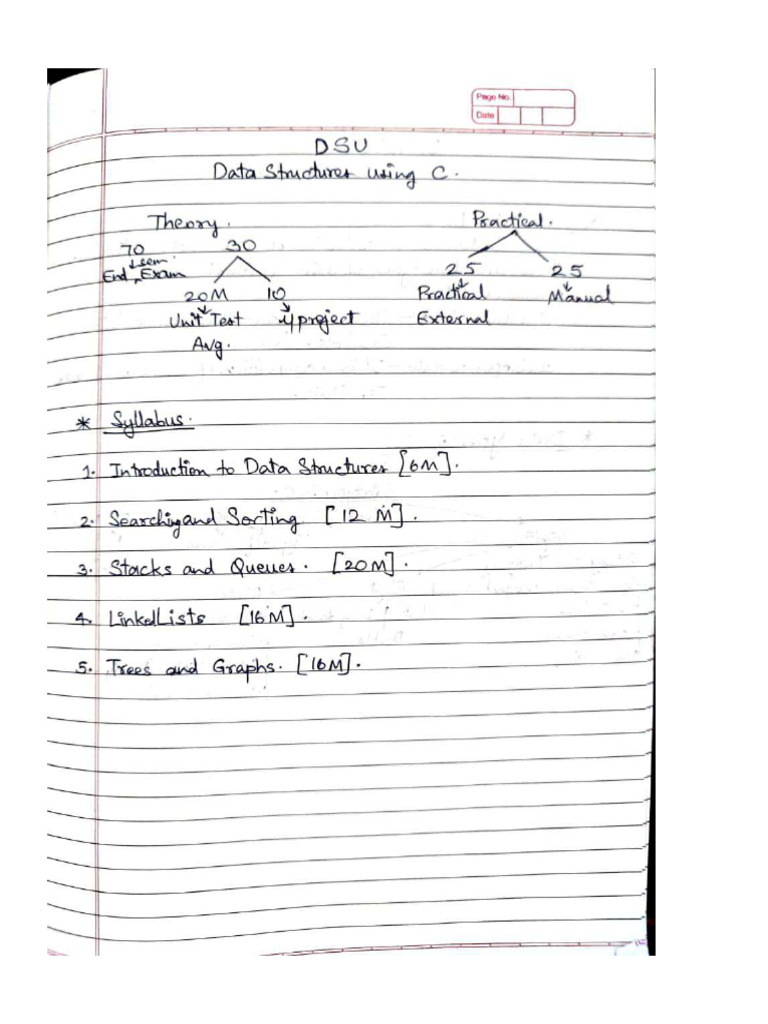 Page No.
Date
DSU
Data Structures using C.
Theory. Practical.
70 30
sem
End Exam 25 25
20M 10 Practical Manual
Unit Test project External
Avg.
* Syllabus.
1. Introduction to Data Structures [6M].
2. Searching and Sorting [12 M].
3. Stacks and Queues. [20M].
4. Linked Lists [16M].
5. Trees and Graphs. [16M].